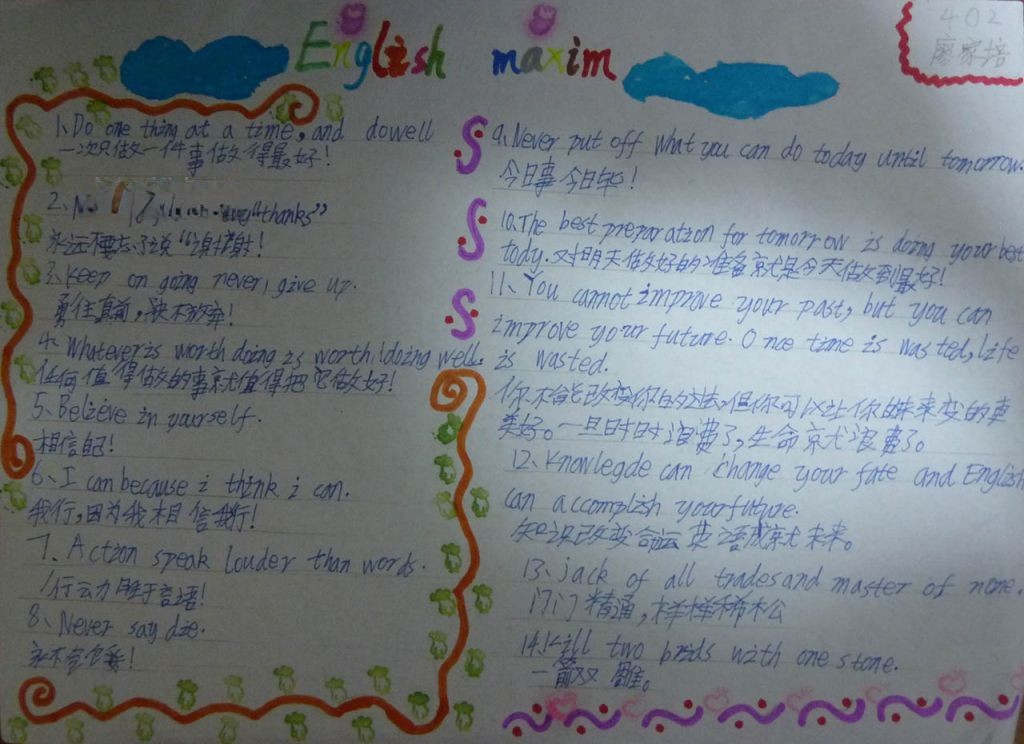 English maxim
402
廖家培
1、Do one thing at a time, and dowell
一次只做一件事做得最好！
2、 "thanks"
永远不要忘了说“谢谢！
3、Keep on going never, give up.
勇往直前，决不放弃！
4、Whatever is worth doing is worth!doing well.
任何值得做的事就值得把它做好！
5、Believe in yourself.
相信自己！
6、I can because i think i can.
我行，因为我相信我行！
7、Action speak louder than words.
行动胜于言语！
8、Never say die.
永不言
9、Never put off what you can do today until tomorrow.
今日事今日毕！
10、The best preparation for tomorrow is doing your best
today. 对明天做好的准备就是今天做到最好！
11、You cannot improve your past, but you can
improve your future. Once time is wasted, life
is wasted.
你不能改变你的过去，但你可以让你的未来变的更
美好。一旦时时浪费了，生命就浪费了。
12、Knowlegde can change your fate and English
can accomplish yourfuture.
知识改变命运英语成就未来。
13、jack of all trades and master of none.
门门精通，样样稀松
14、kill two brids with one stone.
一箭双雕。